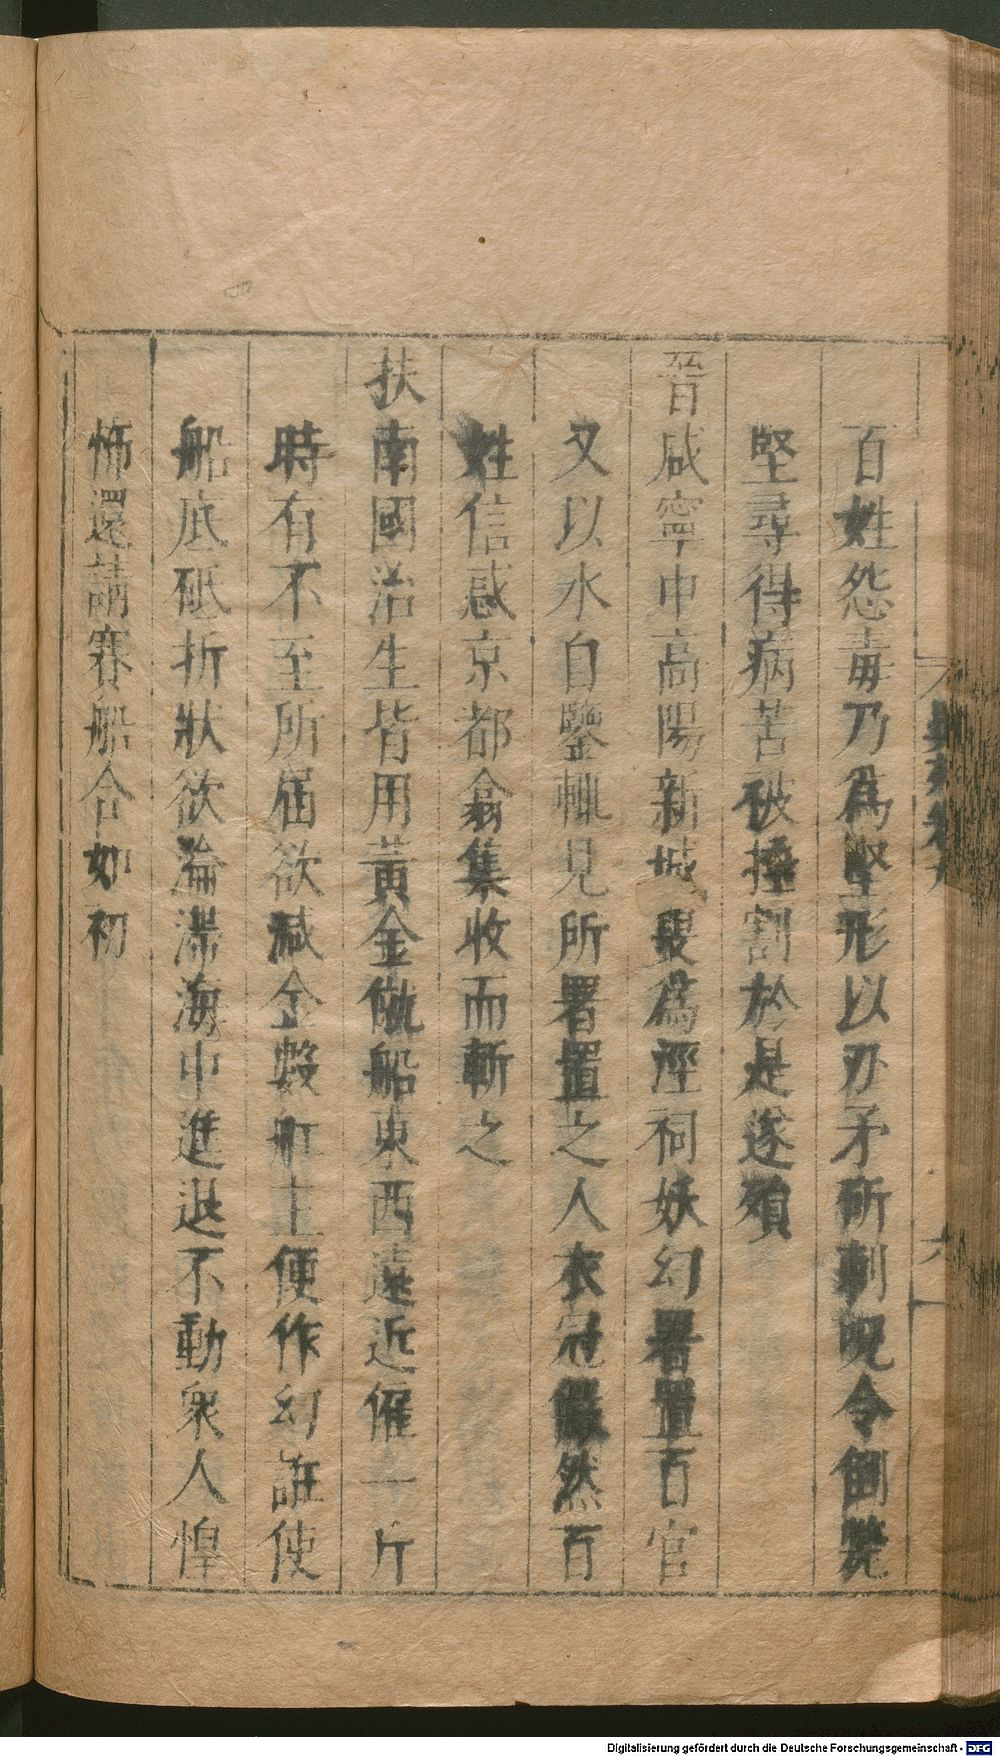 百姓怨毒乃為堅形以刃矛斫刺呪令倒斃
堅尋得病苦被捶割於是遂殞
晉咸寧中高陽新城叟為淫祠妖幻署置百官
又以水自鑒輒見所署置之人衣冠儼然百
姓信惑京都翕集收而斬之
扶南國治生皆用黃金僦船東西遠近雇一斤
時有不至所屆欲減金數船主便作幻誑使
船底砥折狀欲淪滯海中進退不動衆人惶
怖還請賽船合如初
異苑卷九
Digitalisierung gefördert durch die Deutsche Forschungsgemeinschaft - DFG